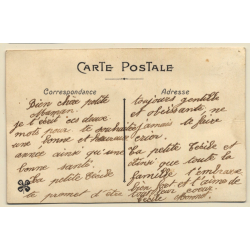 CARTE POSTALE
Correspondance
Adresse
Bien chère petite
Maman
je t'écris ces deux
mots pour te souhaiter
une bonne et heureuse
année ainsi qu'une
bonne santé.
La petite Cécile
te promet d'être
toujours gentille
et obéissante ne
jamais te faire
crier.
La petite Cécile et
ainsi que toute la
famille t'embrasse
bien fort et t'aime de
tout leur coeur.
Cécile